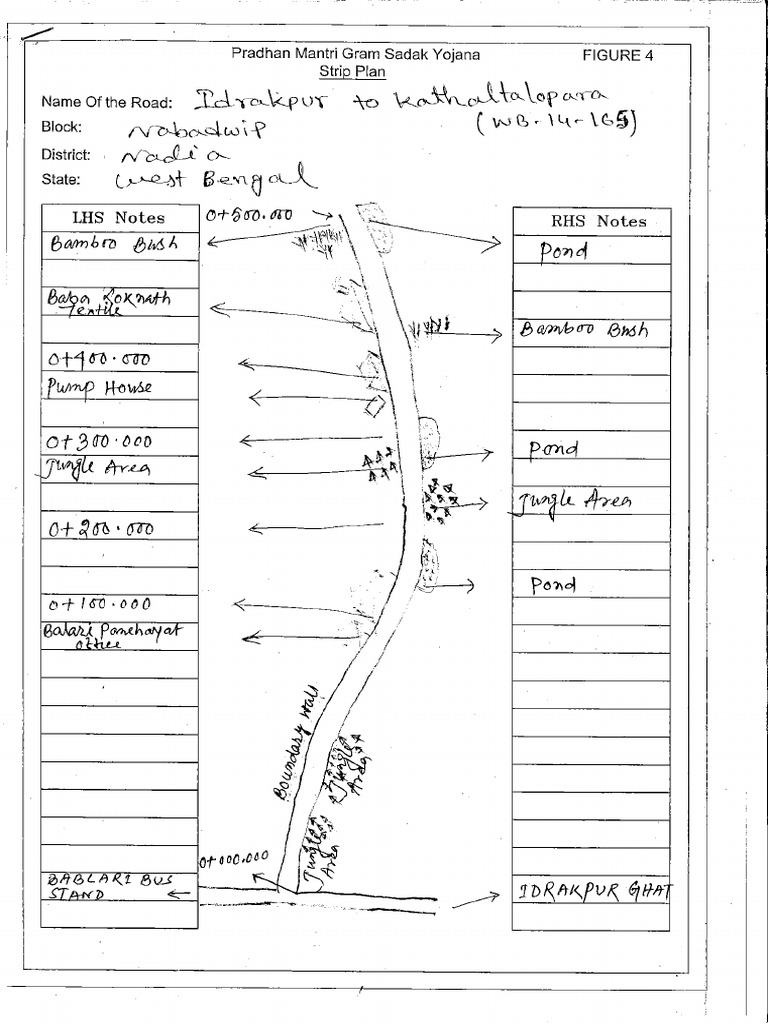 Pradhan Mantri Gram Sadak Yojana
FIGURE 4
Strip Plan
Name Of the Road: Idrakpur to Kathaltalopara
Block: Nabadwip (WB-14-165)
District: Nadia
State: West Bengal
LHS Notes
0+500.000
RHS Notes
Bamboo Bush
Pond
Baba Loknath
Textile
Bamboo Bush
0+400.000
Pump House
0+300.000
Pond
Jungle Area
Jungle Area
0+200.000
Pond
0+100.000
Balari Panchayat
office
Boundary Wall
Jungle
Area
Jungle
Area
0+000.000
BABLARI BUS
STAND
IDRAKPUR GHAT